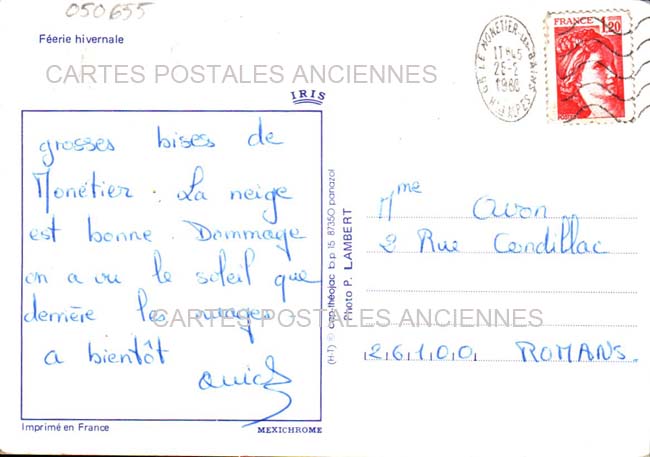 050655
Féerie hivernale
LE MONETIER-LES-BAINS
17H45
26-2
1980
Htes ALPES
FRANCE
1,20
POSTES
CARTES POSTALES ANCIENNES
IRIS
grosses bises de
Monétier. La neige
est bonne. Dommage
on a vu le soleil que
derrière les nuages
a bientôt
(H-T) © cap-théojac b.p. 15 87350 panazol
Photo P. LAMBERT
Mme Avon
2 Rue Condillac
26100 ROMANS
CARTES POSTALES ANCIENNES
Imprimé en France
MEXICHROME